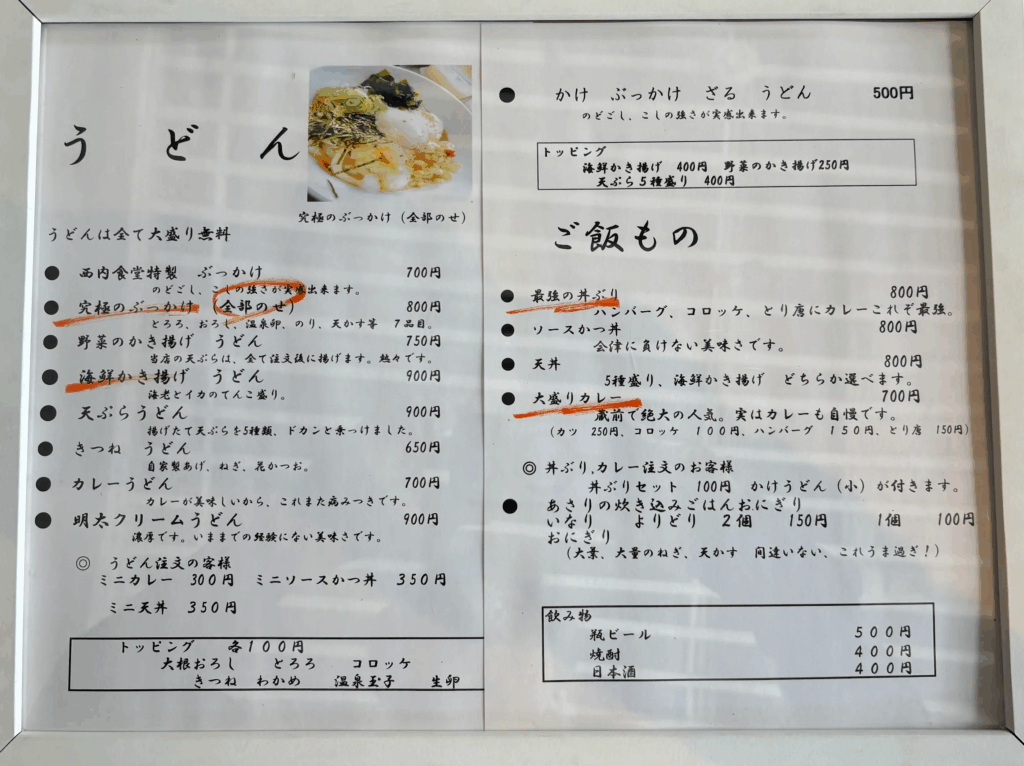 うどん
究極のぶっかけ（全部のせ）
うどんは全て大盛り無料
● 西内食堂特製 ぶっかけ 700円
のどごし、こしの強さが実感出来ます。
● 究極のぶっかけ （全部のせ） 800円
とろろ、おろし、温泉卵、のり、天かす等 7品目。
● 野菜のかき揚げ うどん 750円
当店の天ぷらは、全て注文後に揚げます。熱々です。
● 海鮮かき揚げ うどん 900円
海老とイカのてんこ盛り。
● 天ぷらうどん 900円
揚げたて天ぷらを5種類、ドカンと乗っけました。
● きつね うどん 650円
自家製あげ、ねぎ、昆かつお。
● カレーうどん 700円
カレーが美味しいから、これまた病みつきです。
● 明太クリームうどん 900円
濃厚です。いままでの経験にない美味さです。
◎ うどん注文の客様
ミニカレー 300円 ミニソースかつ丼 350円
ミニ天丼 350円
トッピング 各100円
大根おろし とろろ コロッケ
きつね わかめ 温泉玉子 生卵
● かけ ぶっかけ ざる うどん 500円
のどごし、こしの強さが実感出来ます。
トッピング
海鮮かき揚げ 400円 野菜のかき揚げ250円
天ぷら5種盛り 400円
ご飯もの
● 最強の丼ぶり 800円
ハンバーグ、コロッケ、とり唐にカレーこれぞ最強。
● ソースかつ丼 800円
会津に負けない美味さです。
● 天丼 800円
5種盛り、海鮮かき揚げ どちらか選べます。
● 大盛りカレー 700円
蔵前で絶大の人気。実はカレーも自慢です。
（カツ 250円、コロッケ 100円、ハンバーグ 150円、とり唐 150円）
◎ 丼ぶり、カレー注文のお客様
丼ぶりセット 100円 かけうどん（小）が付きます。
● あさりの炊き込みごはんおにぎり
いなり よりどり 2個 150円 1個 100円
おにぎり
（大葉、大量のねぎ、天かす 間違いない、これうま過ぎ！）
飲み物
瓶ビール 500円
焼酎 400円
日本酒 400円